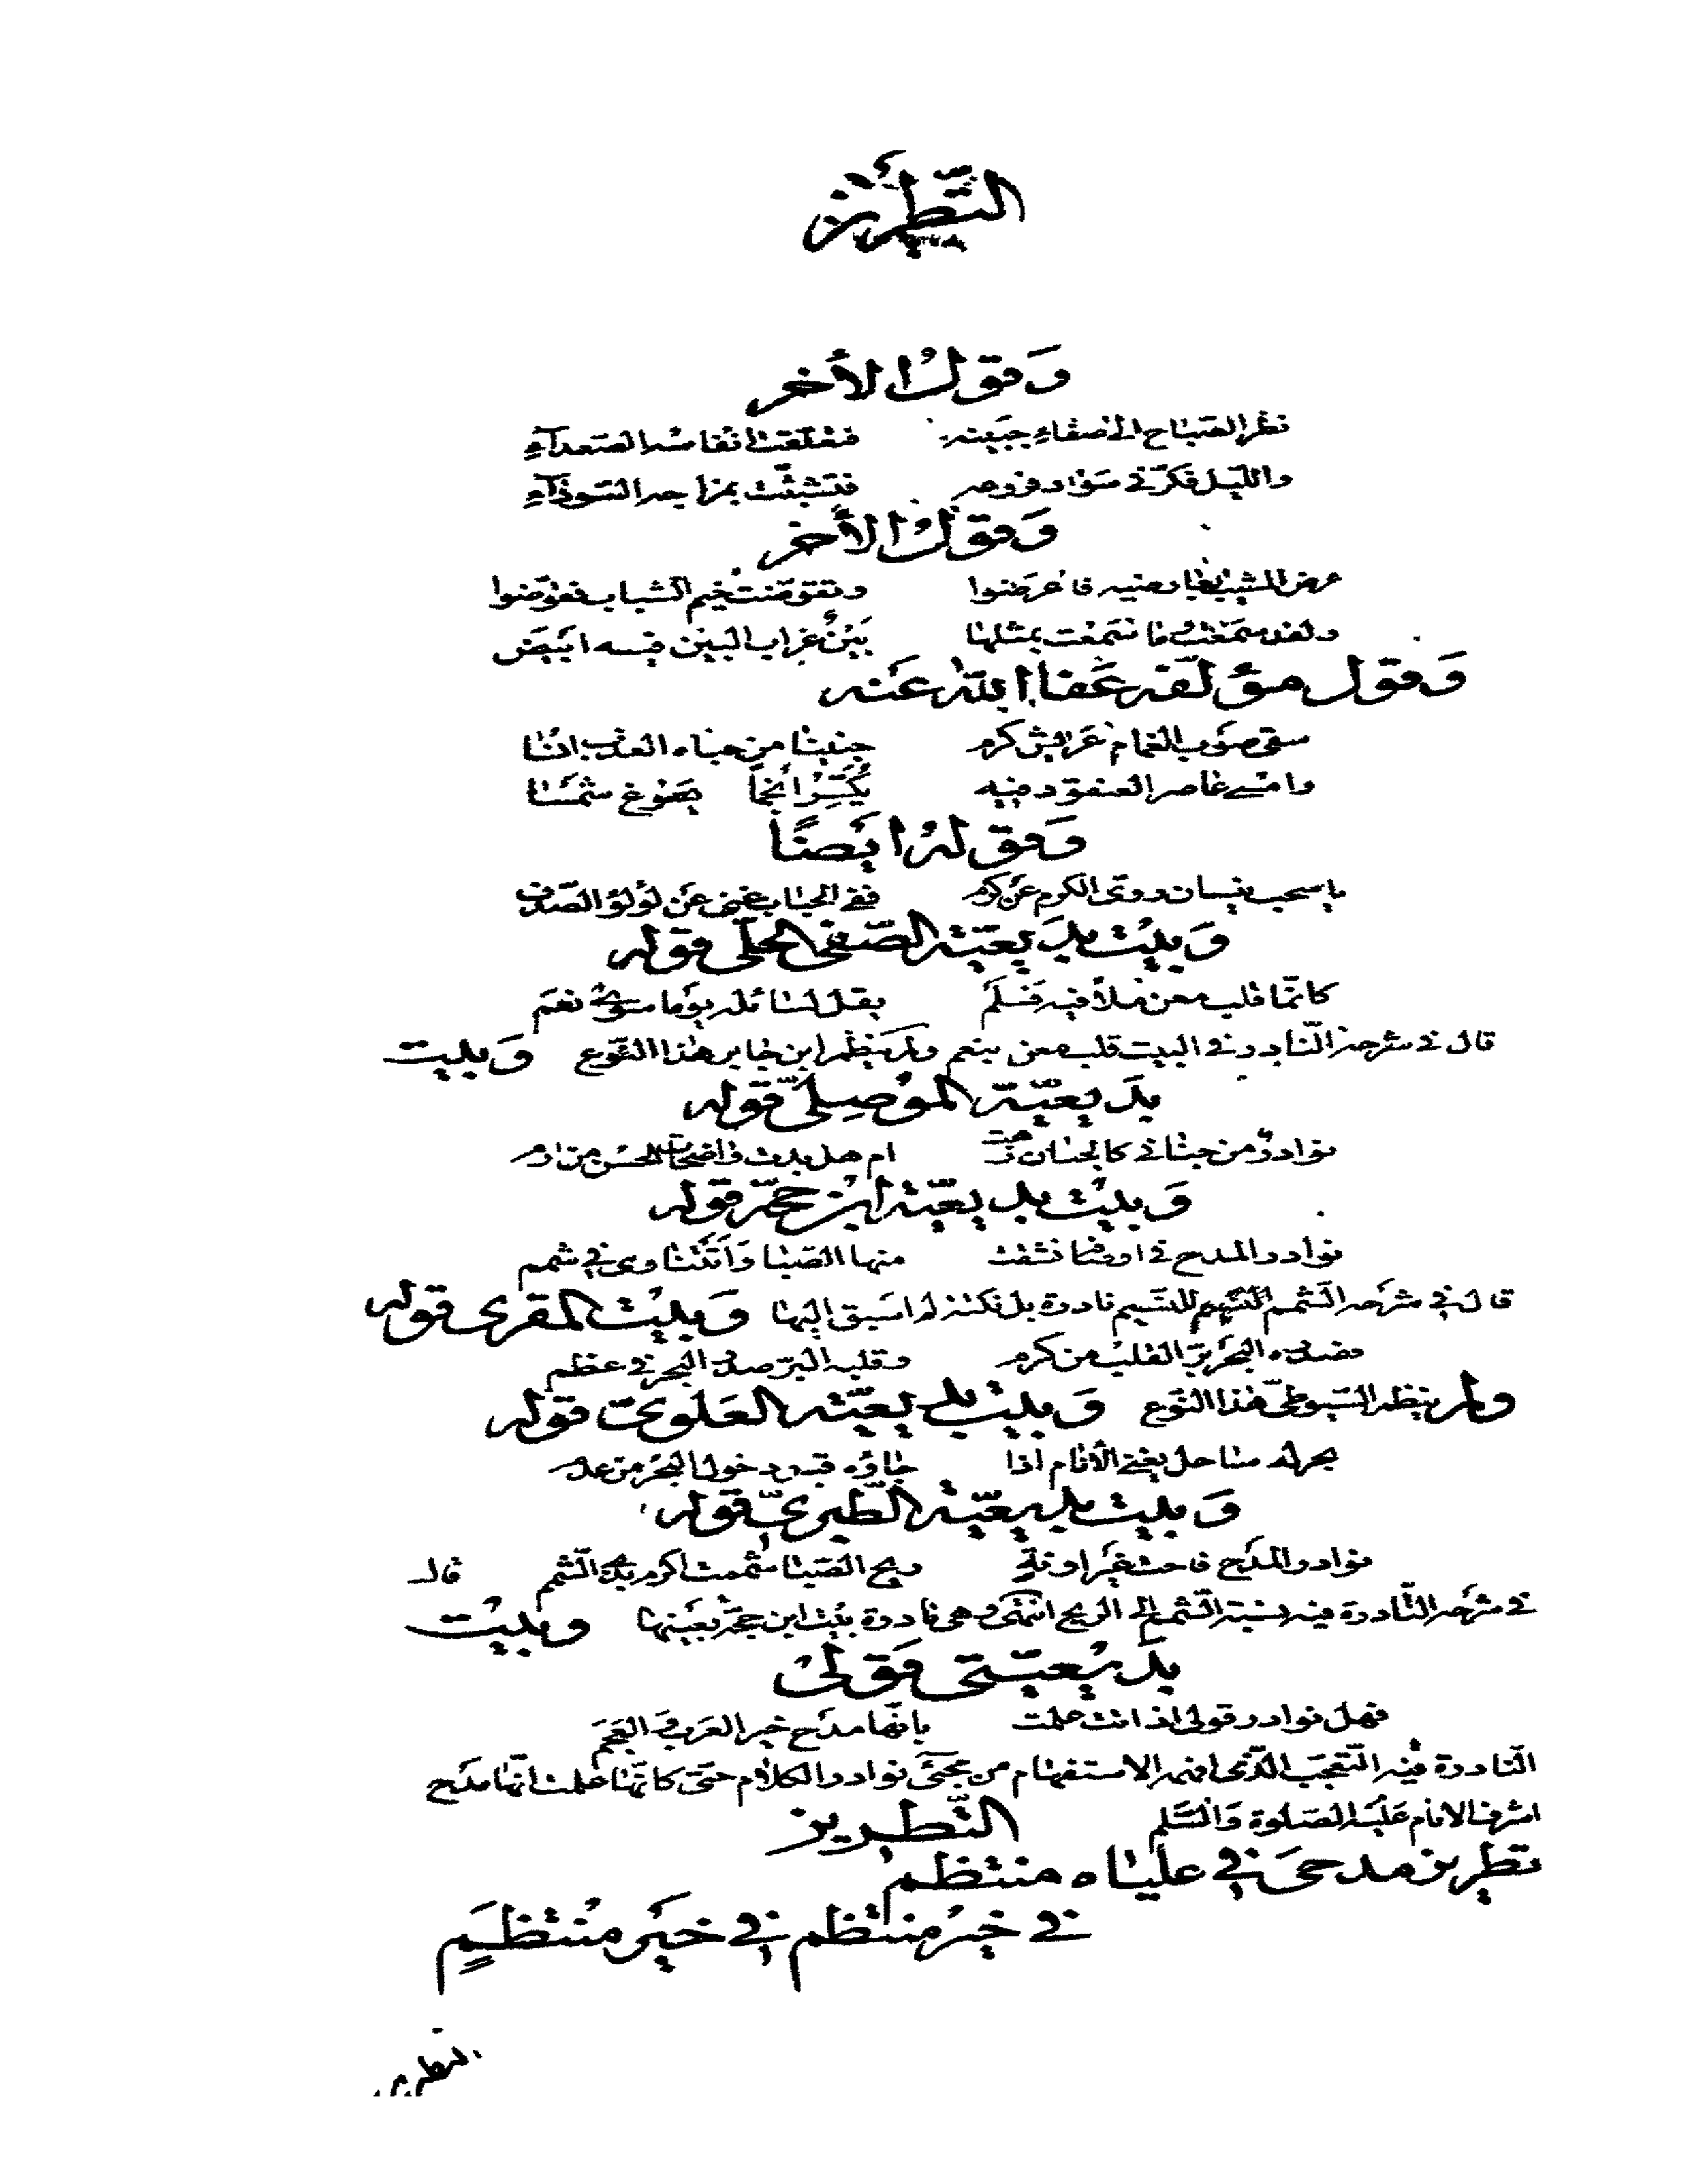 التطريز
وقول الآخر
نظر الصباح الى صفاء جبينه فتعلقت انفاسه الصعدآء
والليل فكر في سواد فروعه فتشبثت بمزاجه السوذآء
وقول الآخر
عرض المشيب بعارضيه فاعرضوا وتقوضت خيم الشباب فقوضوا
ولقد سمعت وما سمعت بمثلها بين غراب البين فيه ابيض
وقول مؤلفه عفا الله عنه
سقى صوب الغمام عريش كرم جنينا من جناه العذب انسا
وامسى عاصر العنقود فيه يكسر انجما يصوغ شمسا
وقوله ايضا
يا سحب نيسان روى الكرم عن كرم ففي الحباب غنى عن لؤلؤ الصدف
وبيت بديعية الصفي الحلى قوله
كانما قلب معن ملأ فيه فلم يقل لسائله يوما سوى نعم
قال في شرحه النادر في البيت قلب معن بنعم ولم ينظم ابن جابر هذا النوع وبيت
بديعية الموصلى قوله
نوادر من جناني كالجنان ام هل بدت واضحات الحسن من ارم
وبيت بديعية ابن حجة قوله
نوادر المدح في اوصافه نشقت منها الصبا واتتنا وهى في شمم
قال في شرحه الشمم للنسيم نادرة بل نكتة لم اسبق اليها وبيت المقرى قوله
البحر بر القلب من كرم وقلبه البر صدر البحر في عظم
ولم ينظم السيوطى هذا النوع وبيت بديعية العلوى قوله
بحر له ساحل يغنى الأنام اذا جاؤه قبل دخول البحر من عدم
وبيت بديعية الطبرى قوله
نوادر المدح فاحت غير اونة ريح الصبا شممت اكرم بذى الشمم قال
في شرحه النادرة فيه نسبة الشمم الى الريح انتهى وهى نادرة بيت ابن حجة بعينها وبيت
بديعيتى قولى
فهل نوادر قولى اذ اتت علمت بانها مدح خير العرب والعجم
النادرة فيه التعجب الذى افهمه الاستفهام من مجئ نوادر الكلام حتى كانها علمت انها مدح
اشرف الانام عليه الصلوة والسلم التطريز
تطريز مدحى في علياه منتظم
في خير منتظم في خير منتظم
التطريز